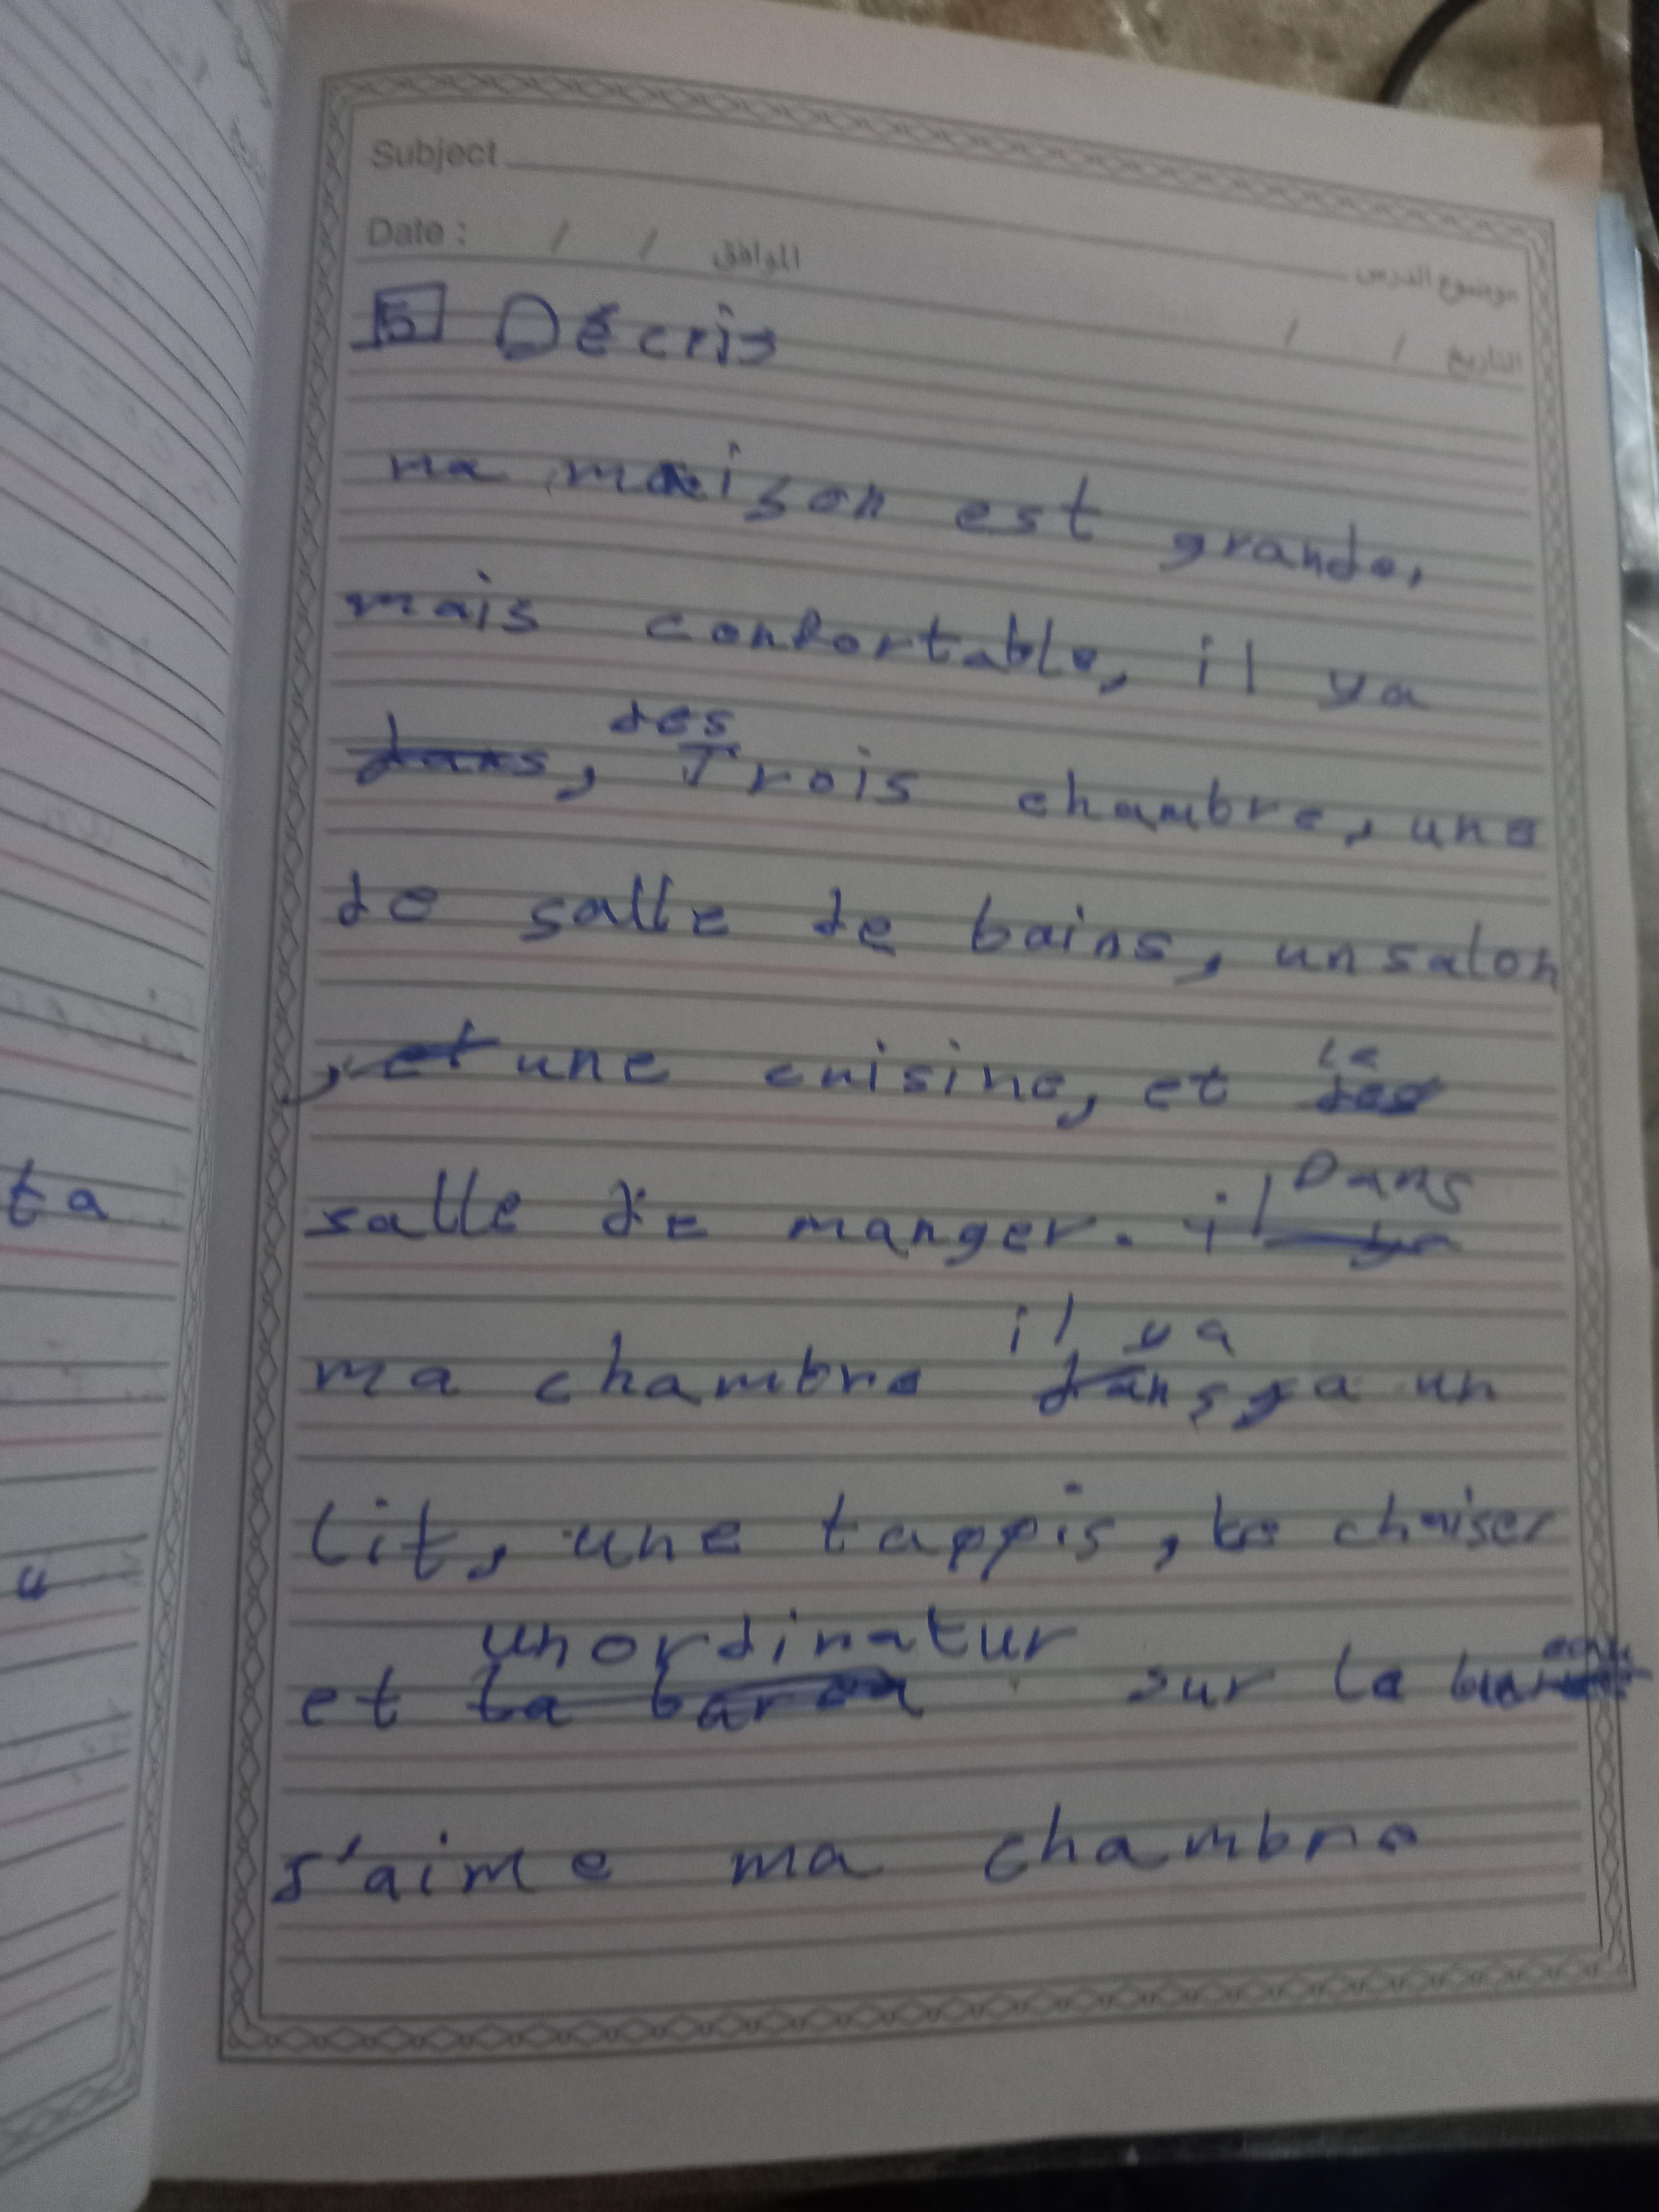 Subject موضوع الدرس
Date : / / الموافق / / التاريخ
5 Décris
ma maison est grande,
mais confortable, il ya
dans, des Trois chambre, une
de salle de bains, un salon
, et une cuisine, et le des
salle de manger. il ya Dans
ma chambre il ya dans, ya un
lit, une tappis, te chaiser
et un ordinatur sur le
J'aime ma chambre
ta
u